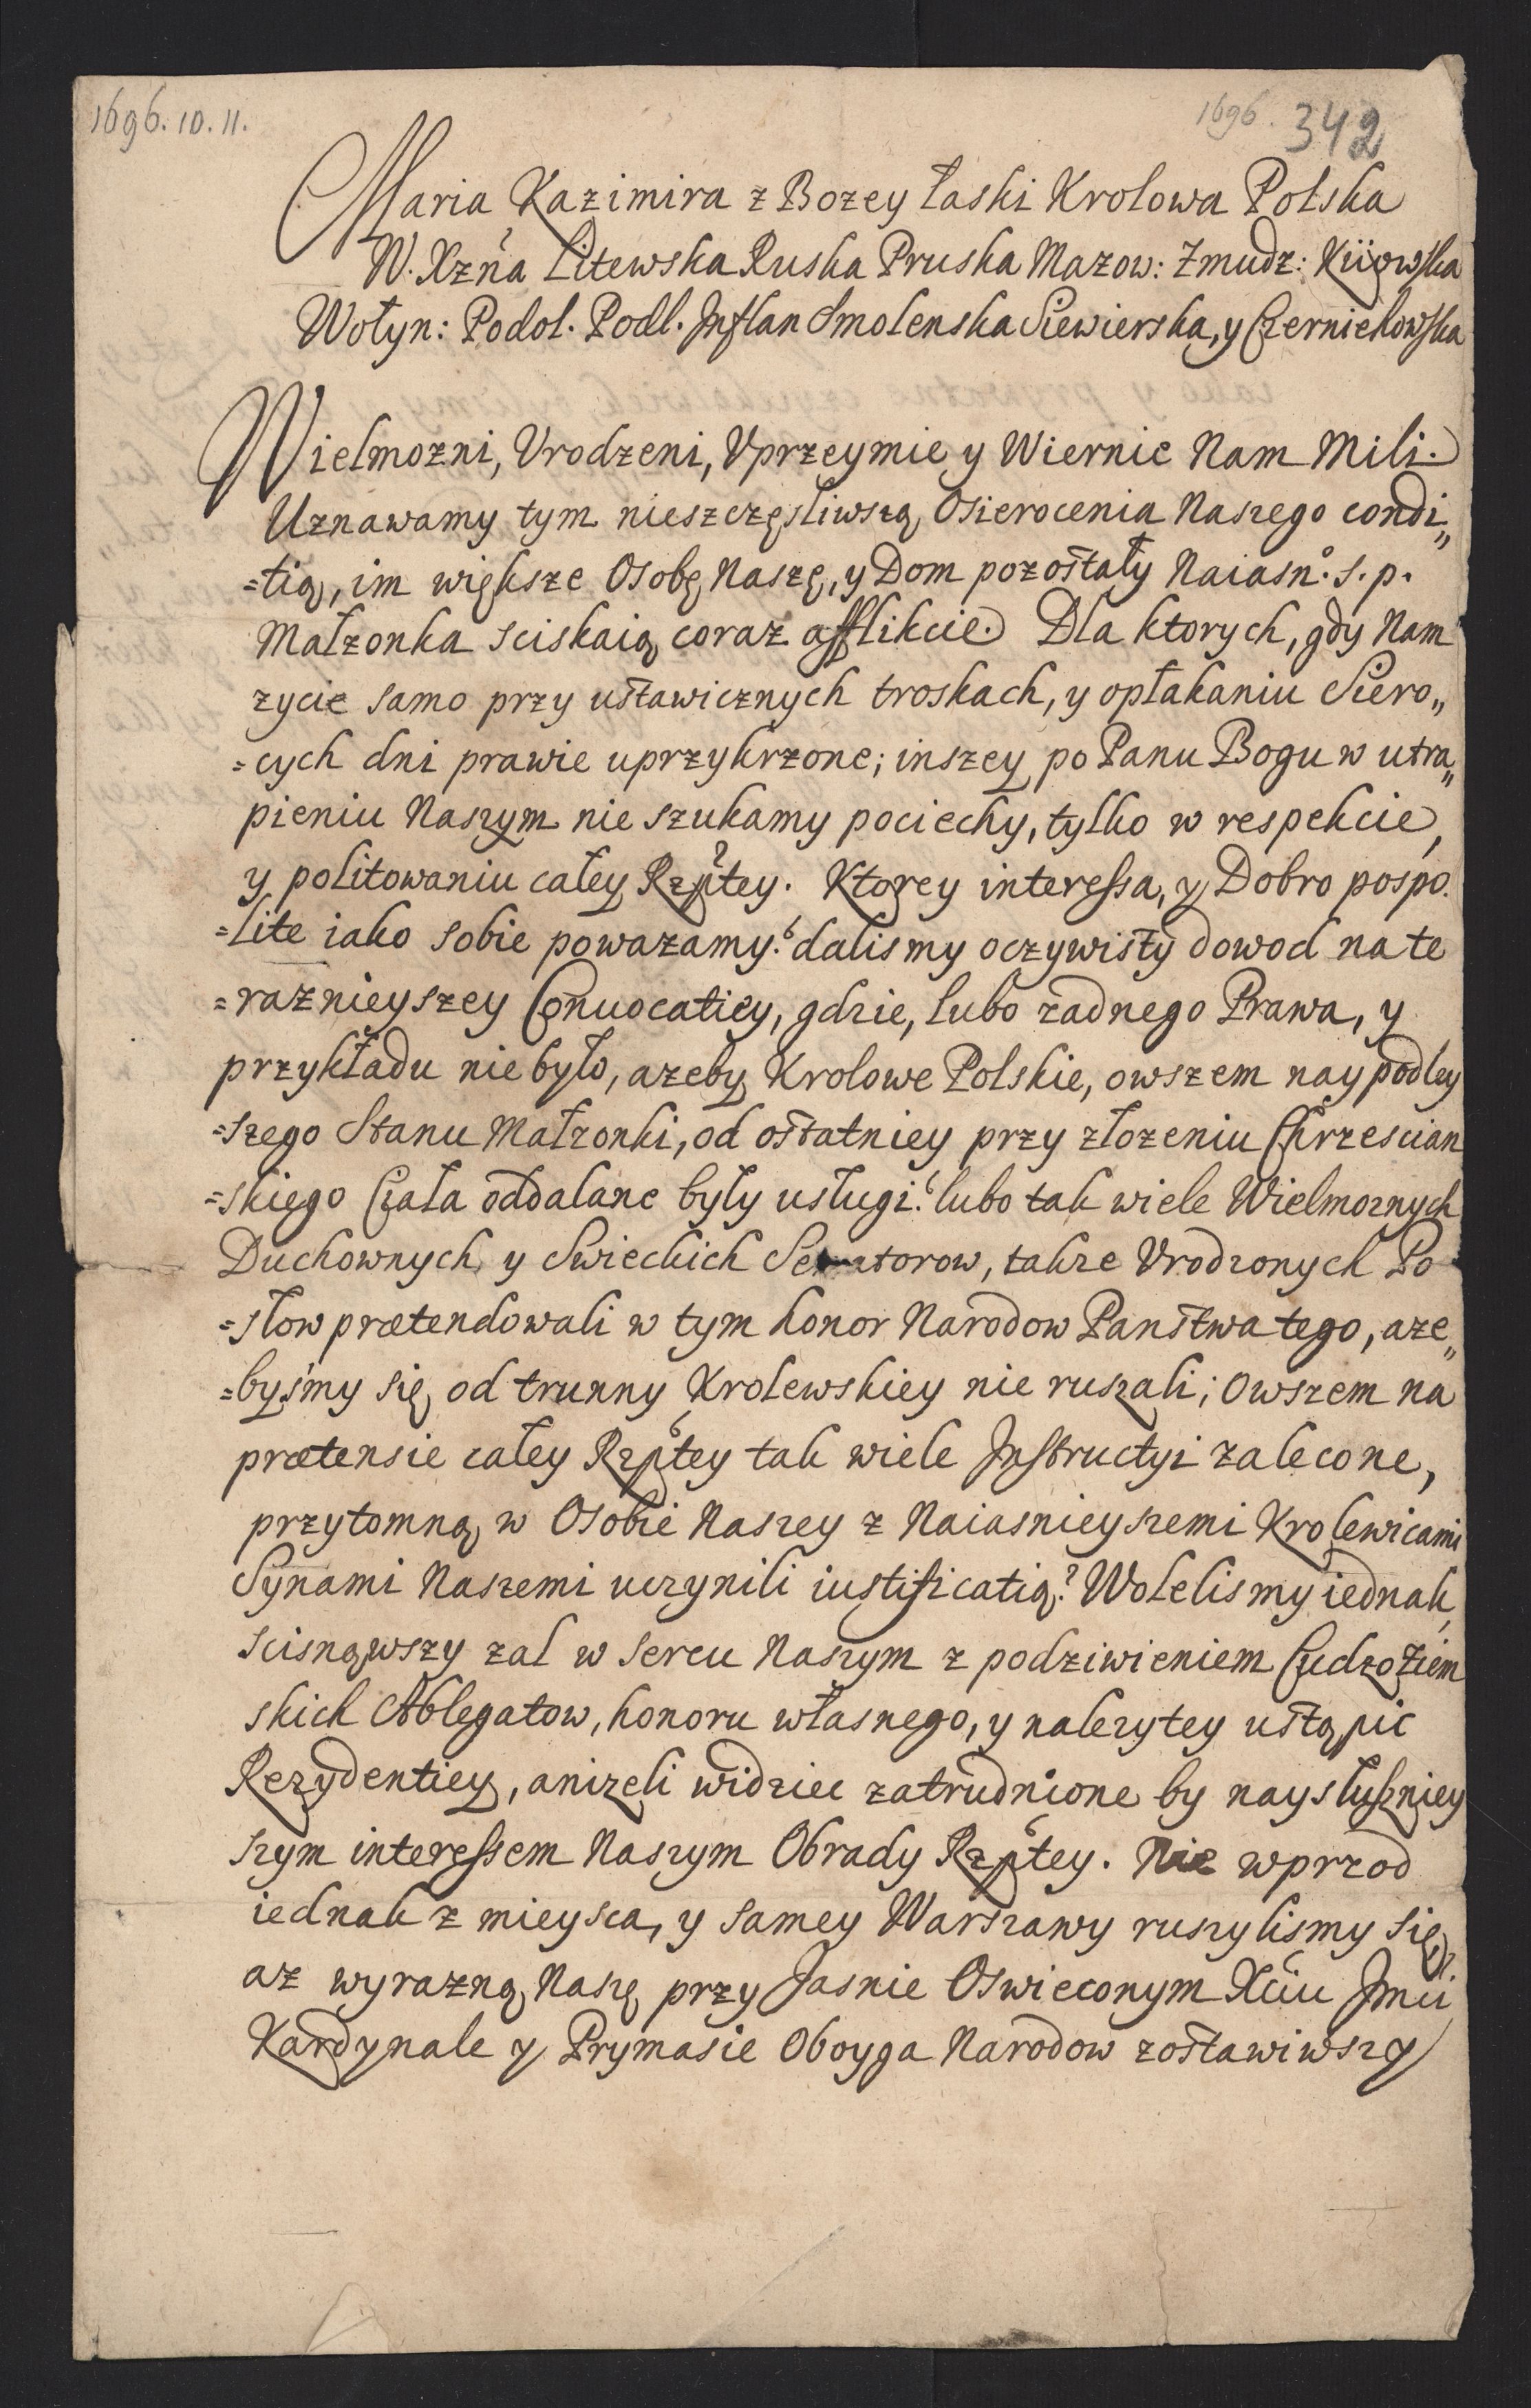 1696. 10. 11.
1696. 342
Maria Kazimira z Bozey łaski Krolowa Polska
W. Xzna Litewska Ruska Pruska Mazow: Zmudz: Kiiowska
Wołyn: Podol. Podl. Inflan Smolenska Siewierska, y Czerniehowska
Wielmozni, Vrodzeni, Vprzeymie y Wiernie Nam Mili.
Uznawamy tym nieszczęsliwszą Osierocenia Naszego condi„
=tią, im większe Osobę Naszę, y Dom pozostały Naiasn.º s. p.
Małzonka sciskaią coraz afflikcie. Dla ktorych, gdy Nam
zycie samo przy ustawicznych troskach, y opłakaniu Siero„
=cych dni prawie uprzykrzone; inszey po Panu Bogu w utra„
pieniu Naszym nie szukamy pociechy, tylko w respekcie,
y politowaniu całey Rzptey. Ktorey interessa, y Dobro pospo.
=lite iako sobie powazamy? dalismy oczywisty dowod na te
=raznieyszey Conuocatiey, gdzie, lubo zadnego Prawa, y
przykładu nie było, azeby Krolowe Polskie, owszem naypodley
=szego Stanu Małzonki, od ostatniey przy złozeniu Chrzescian
=skiego Ciała oddalane były usługi? lubo tak wiele Wielmoznych
Duchownych y Swieckich Senatorow, takze Vrodzonych Po
=słow prætendowali w tym honor Narodow Panstwa tego, aze„
=bysmy się od trunny Krolewskiey nie ruszali; Owszem na
prætensie całey Rzptey tak wiele Instructyi zalecone,
przytomną w Osobie Naszey z Naiasnieyszemi Krolewicami
Synami Naszemi uczynili iustificatią? Wolelismy iednak,
scisnąwszy zal w sercu Naszym z podziwieniem Cudzoziem
skich Ablegatow, honoru własnego, y nalezytey ustąpic
Rezydentiey, anizeli widziec zatrudnione by naysłuszniey
szym interessem Naszym Obrady Rzptey. Nie wprzod
iednak z mieysca, y samey Warszawy ruszylismy się,
az wyrazną Naszę przy Jasnie Oswieconym Xciu Jmci
Kardynale y Prymasie Oboyga Narodow zostawiwszy